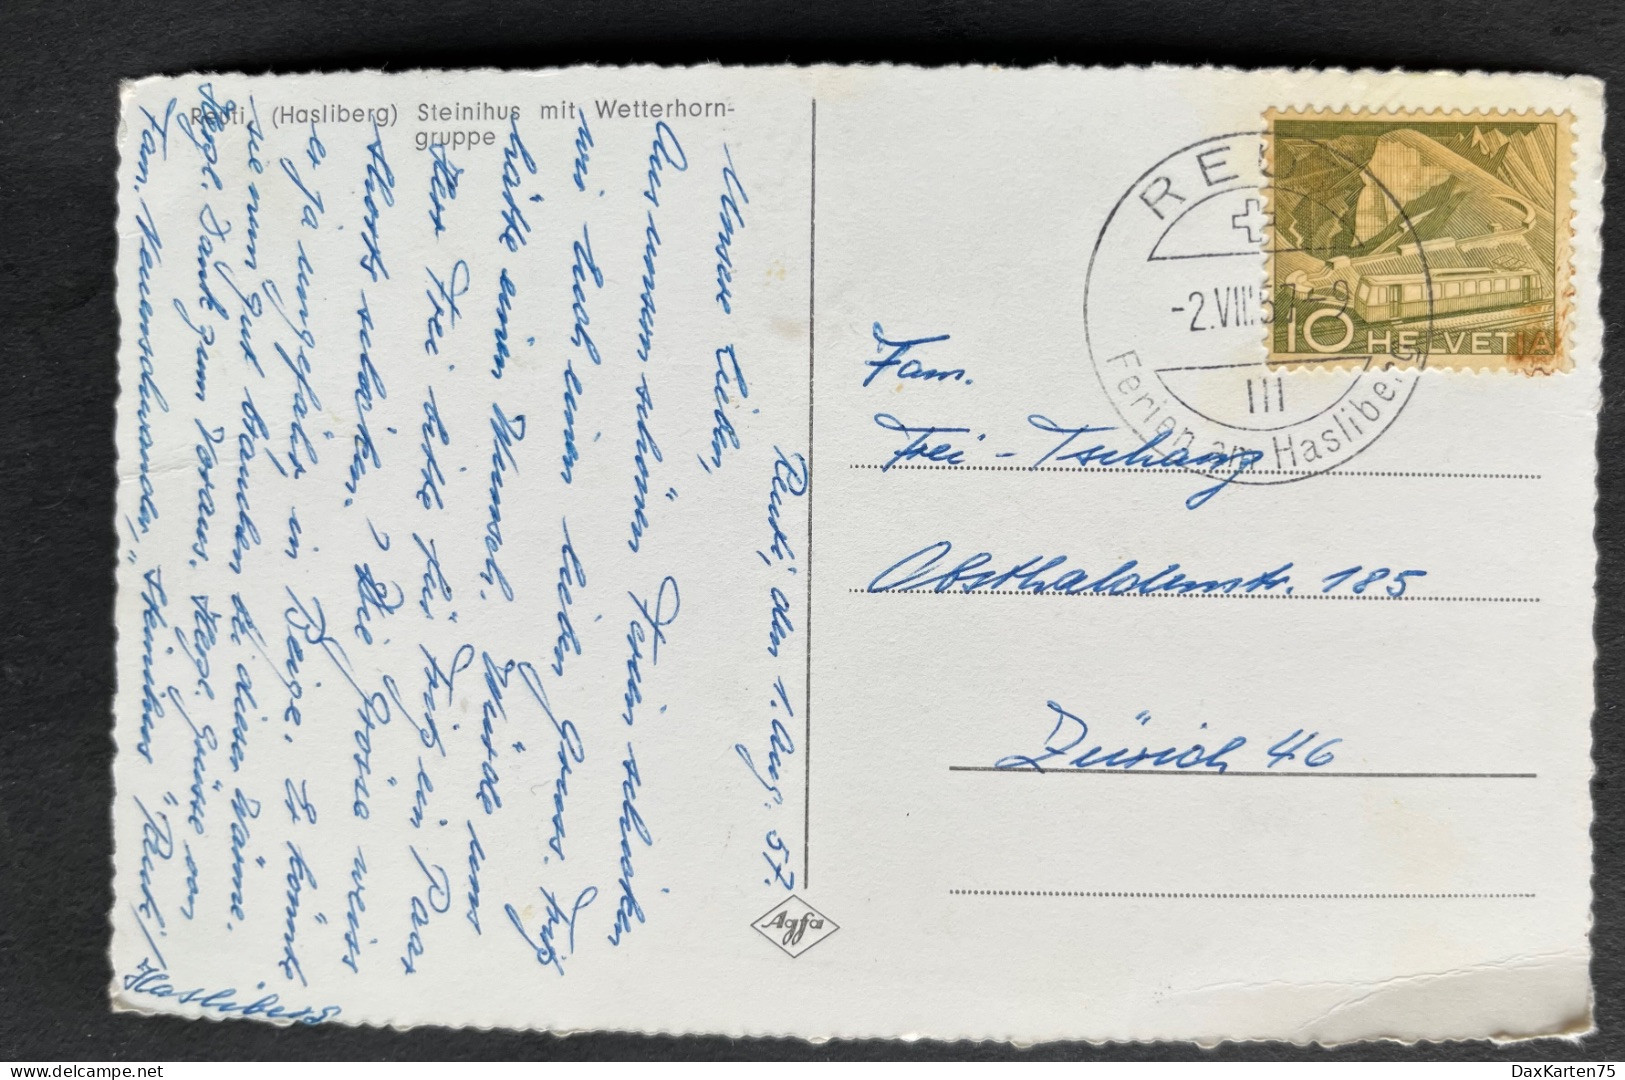 Reuti (Hasliberg) Steinihus mit Wetterhorn-
gruppe
Reuti, den 1. Aug. 57.
Unsere Lieben,
Aus unsern schönen Ferien schicken
wir Euch einen lieben Gruss. Fritz
hätte einen Wunsch. Würde uns
Herr Frei bitte für Fritz ein Paar
Shorts schicken? Die Grösse weiss
er ja ungefähr, in Beige. Er könnte
sie nun gut brauchen bei dieser Wärme.
Herzl. Dank zum Voraus. Herzl. Grüsse von
Fam. Neuenschwander, "Steinihus" Reuti/
Hasliberg
Agfa
REUTI
-2.VIII.57-9
III
Ferien am Hasliberg
10 HELVETIA
Fam.
Frei - Tschanz
Obsthaldenstr. 185
Zürich 46
DaxKarten75